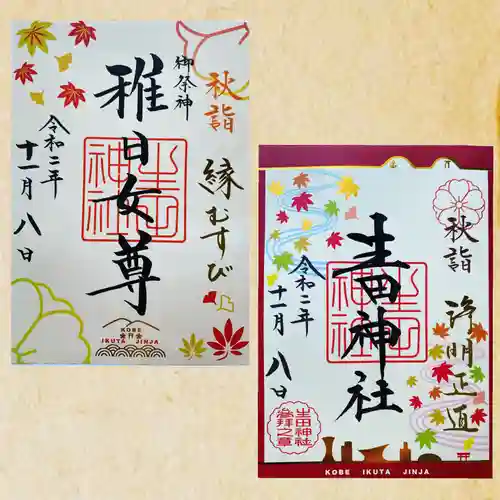 秋詣
縁むすび
御祭神
稚日女尊
生田神社
令和二年
十一月八日
KOBE
IKUTA JINJA
秋詣
浄明正直
生田神社
生田神社
令和二年
十一月八日
生田神社
参拝之章
KOBE IKUTA JINJA